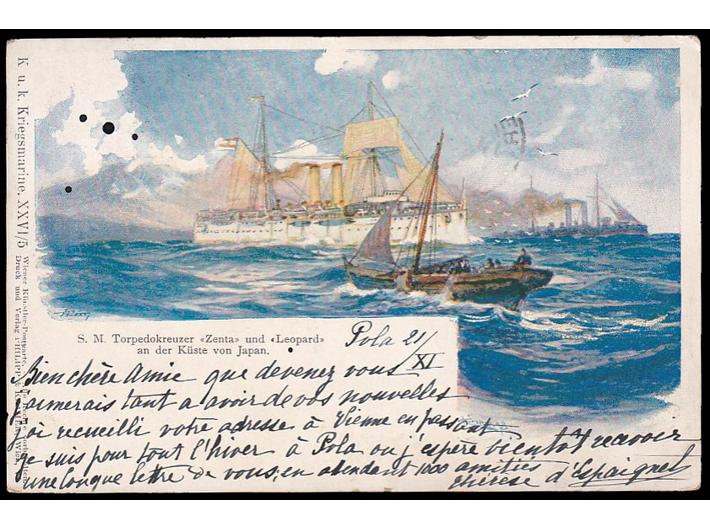 K. u. k. Kriegsmarine. XXVI/5
Wiener Künstler-Postkarte
Druck und Verlag PHILIPP
S. M. Torpedokreuzer «Zenta» und «Leopard»
an der Küste von Japan.
Pola 21/XI
Bien chère Amie que devenez vous
j'aimerais tant a avoir de vos nouvelles
j'ai recueilli votre adresse à Vienne en passant
je suis pour tout l'hiver à Pola ou j'espère bientôt recevoir
une longue lettre de vous, en attendant 1000 amitiés
Thérèse d'Espaignes